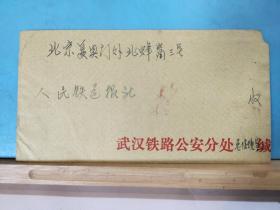 北京复兴门外北蜂窝三号
人民铁道报社
收
武汉铁路公安分处
缄